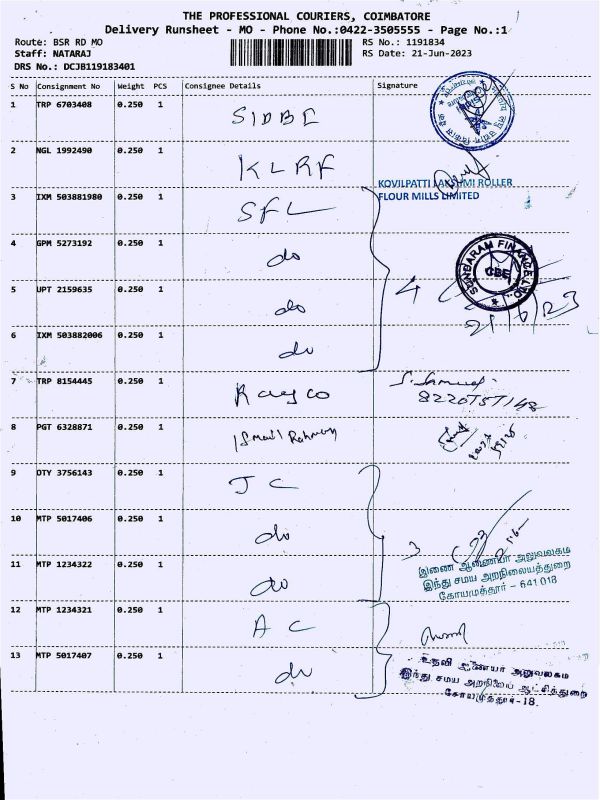 THE PROFESSIONAL COURIERS, COIMBATORE
Delivery Runsheet - MO - Phone No.:0422-3505555 - Page No.:1
Route: BSR RD MO RS No.: 1191834
Staff: NATARAJ RS Date: 21-Jun-2023
DRS No.: DCJB119183401
S No Consignment No Weight PCS Consignee Details Signature
1 TRP 6703408 0.250 1 SIDBI
2 NGL 1992490 0.250 1 KLRF
KOVILPATTI LAKSHMI ROLLER
FLOUR MILLS LIMITED
3 IXM 503881980 0.250 1 SFL
4 GPM 5273192 0.250 1 do
SUNDARAM FINANCE LTD. CBE
5 UPT 2159635 0.250 1 do 4
21/6/23
6 IXM 503882006 0.250 1 do
7 TRP 8154445 0.250 1 Rayco
8 PGT 6328871 0.250 1 Ismail Rahman
9 OTY 3756143 0.250 1 JC
10 MTP 5017406 0.250 1 do 3
இணை ஆணையர் அலுவலகம்
இந்து சமய அறநிலையத்துறை
கோயமுத்தூர் - 641 018
11 MTP 1234322 0.250 1 do
12 MTP 1234321 0.250 1 AC
13 MTP 5017407 0.250 1 do
உதவி ஆணையர் அலுவலகம்
இந்து சமய அறநிலைய ஆட்சித்துறை
கோயமுத்தூர்-18.